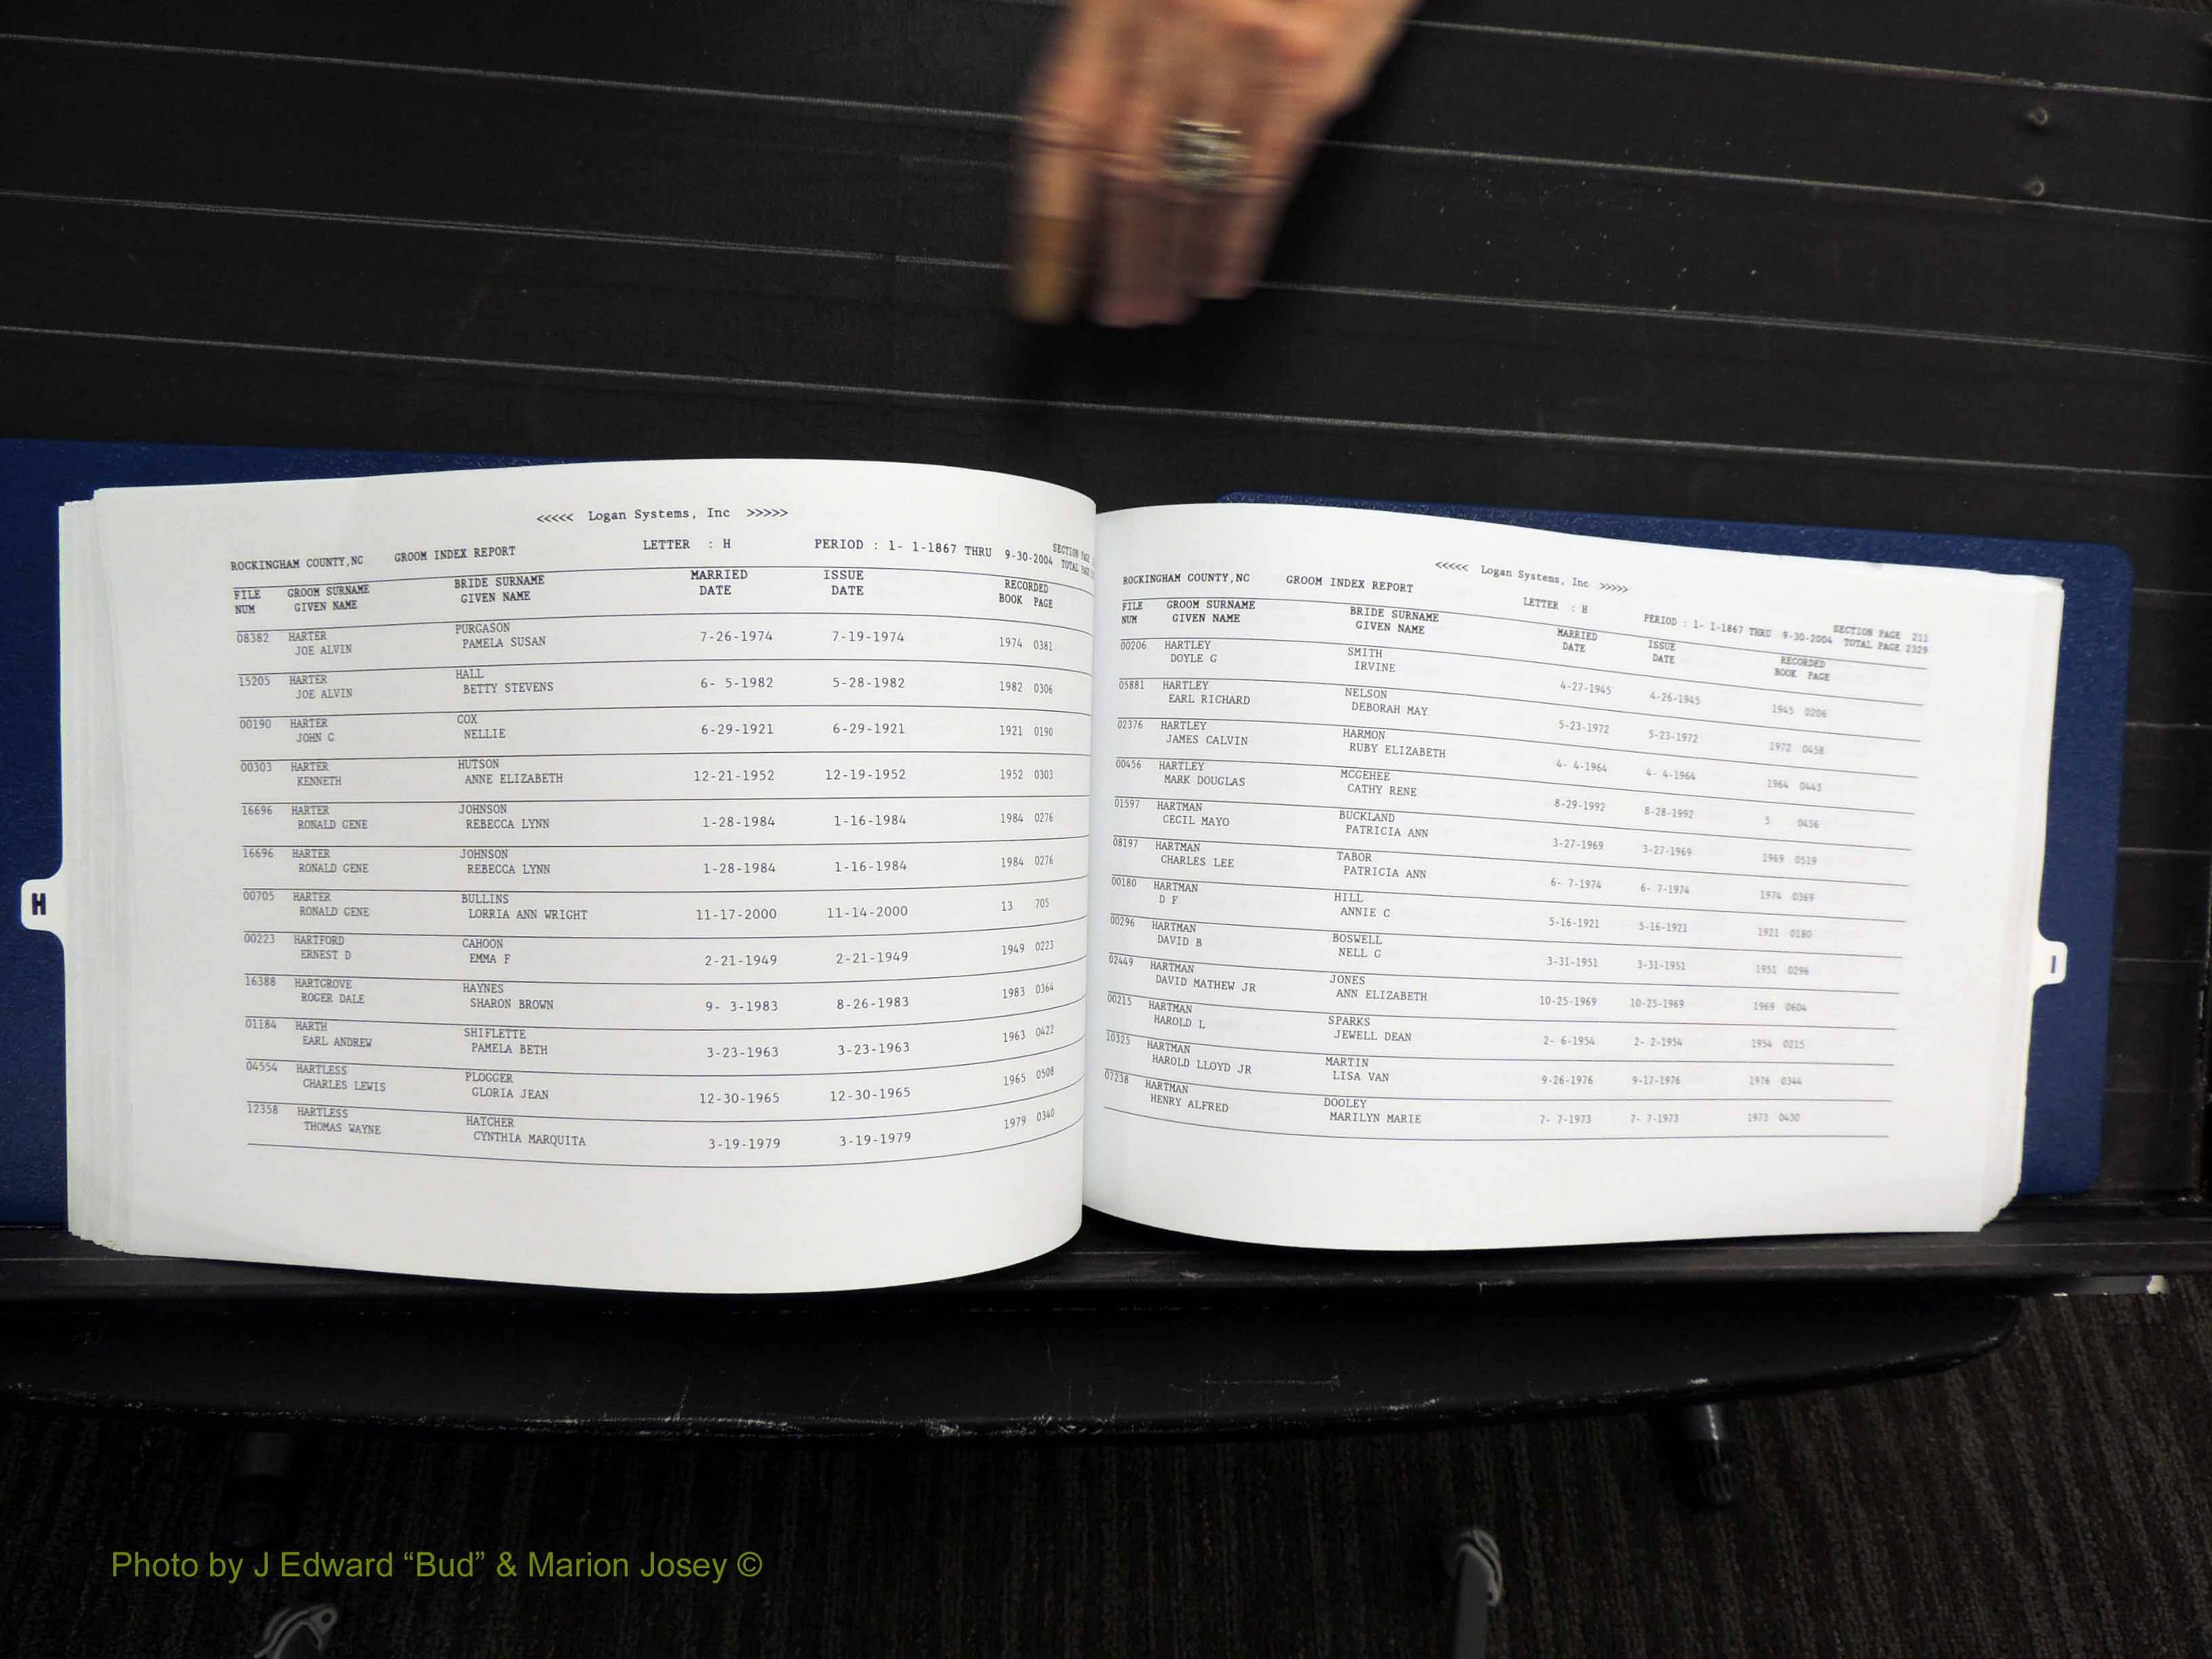 <<<<< Logan Systems, Inc >>>>>
ROCKINGHAM COUNTY,NC GROOM INDEX REPORT LETTER : H PERIOD : 1- 1-1867 THRU 9-30-2004 SECTION PAGE
TOTAL PAGE
FILE GROOM SURNAME BRIDE SURNAME MARRIED ISSUE RECORDED
NUM GIVEN NAME GIVEN NAME DATE DATE BOOK PAGE
08382 HARTER PURGASON 7-26-1974 7-19-1974 1974 0381
JOE ALVIN PAMELA SUSAN
15205 HARTER HALL 6- 5-1982 5-28-1982 1982 0306
JOE ALVIN BETTY STEVENS
00190 HARTER COX 6-29-1921 6-29-1921 1921 0190
JOHN G NELLIE
00303 HARTER HUTSON 12-21-1952 12-19-1952 1952 0303
KENNETH ANNE ELIZABETH
16696 HARTER JOHNSON 1-28-1984 1-16-1984 1984 0276
RONALD GENE REBECCA LYNN
16696 HARTER JOHNSON 1-28-1984 1-16-1984 1984 0276
RONALD GENE REBECCA LYNN
00705 HARTER BULLINS 11-17-2000 11-14-2000 13 705
RONALD GENE LORRIA ANN WRIGHT
00223 HARTFORD CAHOON 2-21-1949 2-21-1949 1949 0223
ERNEST D EMMA F
16388 HARTGROVE HAYNES 9- 3-1983 8-26-1983 1983 0364
ROGER DALE SHARON BROWN
01184 HARTH SHIFLETTE 3-23-1963 3-23-1963 1963 0422
EARL ANDREW PAMELA BETH
04554 HARTLESS PLOGGER 12-30-1965 12-30-1965 1965 0508
CHARLES LEWIS GLORIA JEAN
12358 HARTLESS HATCHER 3-19-1979 3-19-1979 1979 0340
THOMAS WAYNE CYNTHIA MARQUITA
H
<<<<< Logan Systems, Inc >>>>>
ROCKINGHAM COUNTY,NC GROOM INDEX REPORT LETTER : H PERIOD : 1- 1-1867 THRU 9-30-2004 SECTION PAGE 211
TOTAL PAGE 2329
FILE GROOM SURNAME BRIDE SURNAME MARRIED ISSUE RECORDED
NUM GIVEN NAME GIVEN NAME DATE DATE BOOK PAGE
00206 HARTLEY SMITH 4-27-1945 4-26-1945 1945 0206
DOYLE G IRVINE
05881 HARTLEY NELSON 5-23-1972 5-23-1972 1972 0458
EARL RICHARD DEBORAH MAY
02376 HARTLEY HARMON 4- 4-1964 4- 4-1964 1964 0443
JAMES CALVIN RUBY ELIZABETH
00456 HARTLEY MCGEHEE 8-29-1992 8-28-1992 5 0456
MARK DOUGLAS CATHY RENE
01597 HARTMAN BUCKLAND 3-27-1969 3-27-1969 1969 0519
CECIL MAYO PATRICIA ANN
08197 HARTMAN TABOR 6- 7-1974 6- 7-1974 1974 0369
CHARLES LEE PATRICIA ANN
00180 HARTMAN HILL 5-16-1921 5-16-1921 1921 0180
D F ANNIE C
00296 HARTMAN BOSWELL 3-31-1951 3-31-1951 1951 0296
DAVID B NELL G
02449 HARTMAN JONES 10-25-1969 10-25-1969 1969 0604
DAVID MATHEW JR ANN ELIZABETH
00215 HARTMAN SPARKS 2- 6-1954 2- 2-1954 1954 0215
HAROLD L JEWELL DEAN
10325 HARTMAN MARTIN 9-26-1976 9-17-1976 1976 0344
HAROLD LLOYD JR LISA VAN
07238 HARTMAN DOOLEY 7- 7-1973 7- 7-1973 1973 0430
HENRY ALFRED MARILYN MARIE
I
Photo by J Edward “Bud” & Marion Josey ©